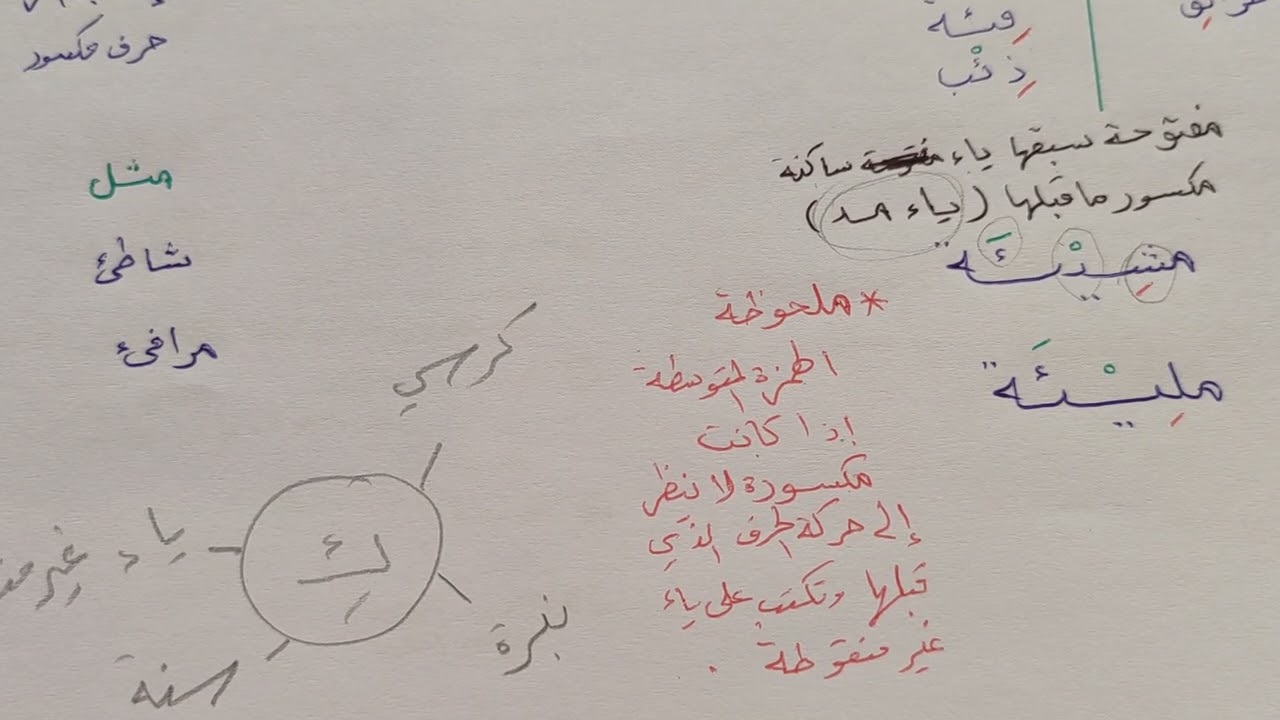 فِئة
ذِئْب
مفتوحة سبقها ياء ساكنة
مكسور ما قبلها (ياء مد)
مشِيْئَة
ملِيْئَة
* ملحوظة
الهمزة المتوسطة
إذا كانت
مكسورة لا ينظر
إلى حركة الحرف الذي
قبلها وتكتب على ياء
غير منقوطة .
حرف مكسور
مثل
شاطئ
مرافئ
كرسي
ئِ
ياء غير
نبرة
سنة